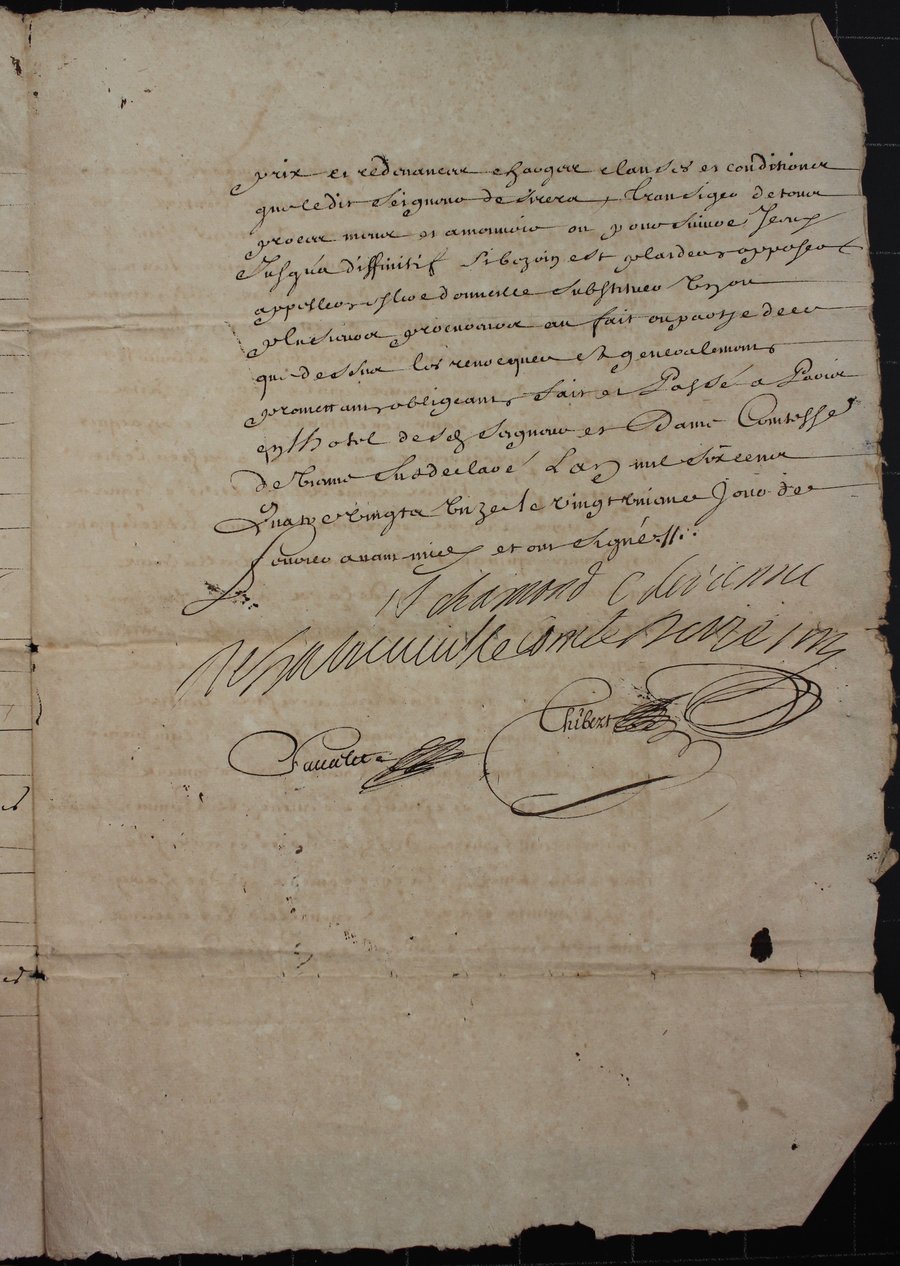 prix et redevances charges clauses et conditions
que ledit Seigneur desirera, transiger de tous
proces meus et a mouvoir ou poursuivre Iceux
Jusqua diffinitif si besoin est plaider opposer
appeller eslire domicille substituer un ou
plusieurs procureurs au fait ou partye de ce
que dessus les revocquer et generalement
promettant obligeant fait et Passé a Paris
en lhotel desd Seigneur et Dame Comtesse
de susdeclaré Lan mil six cens
Quatre vingts unze le vingt uniesme Jour de
feuvrier avant midy et ont signé ·//·
St chamond C de vienne
Le comte de
Thibert
Saualette